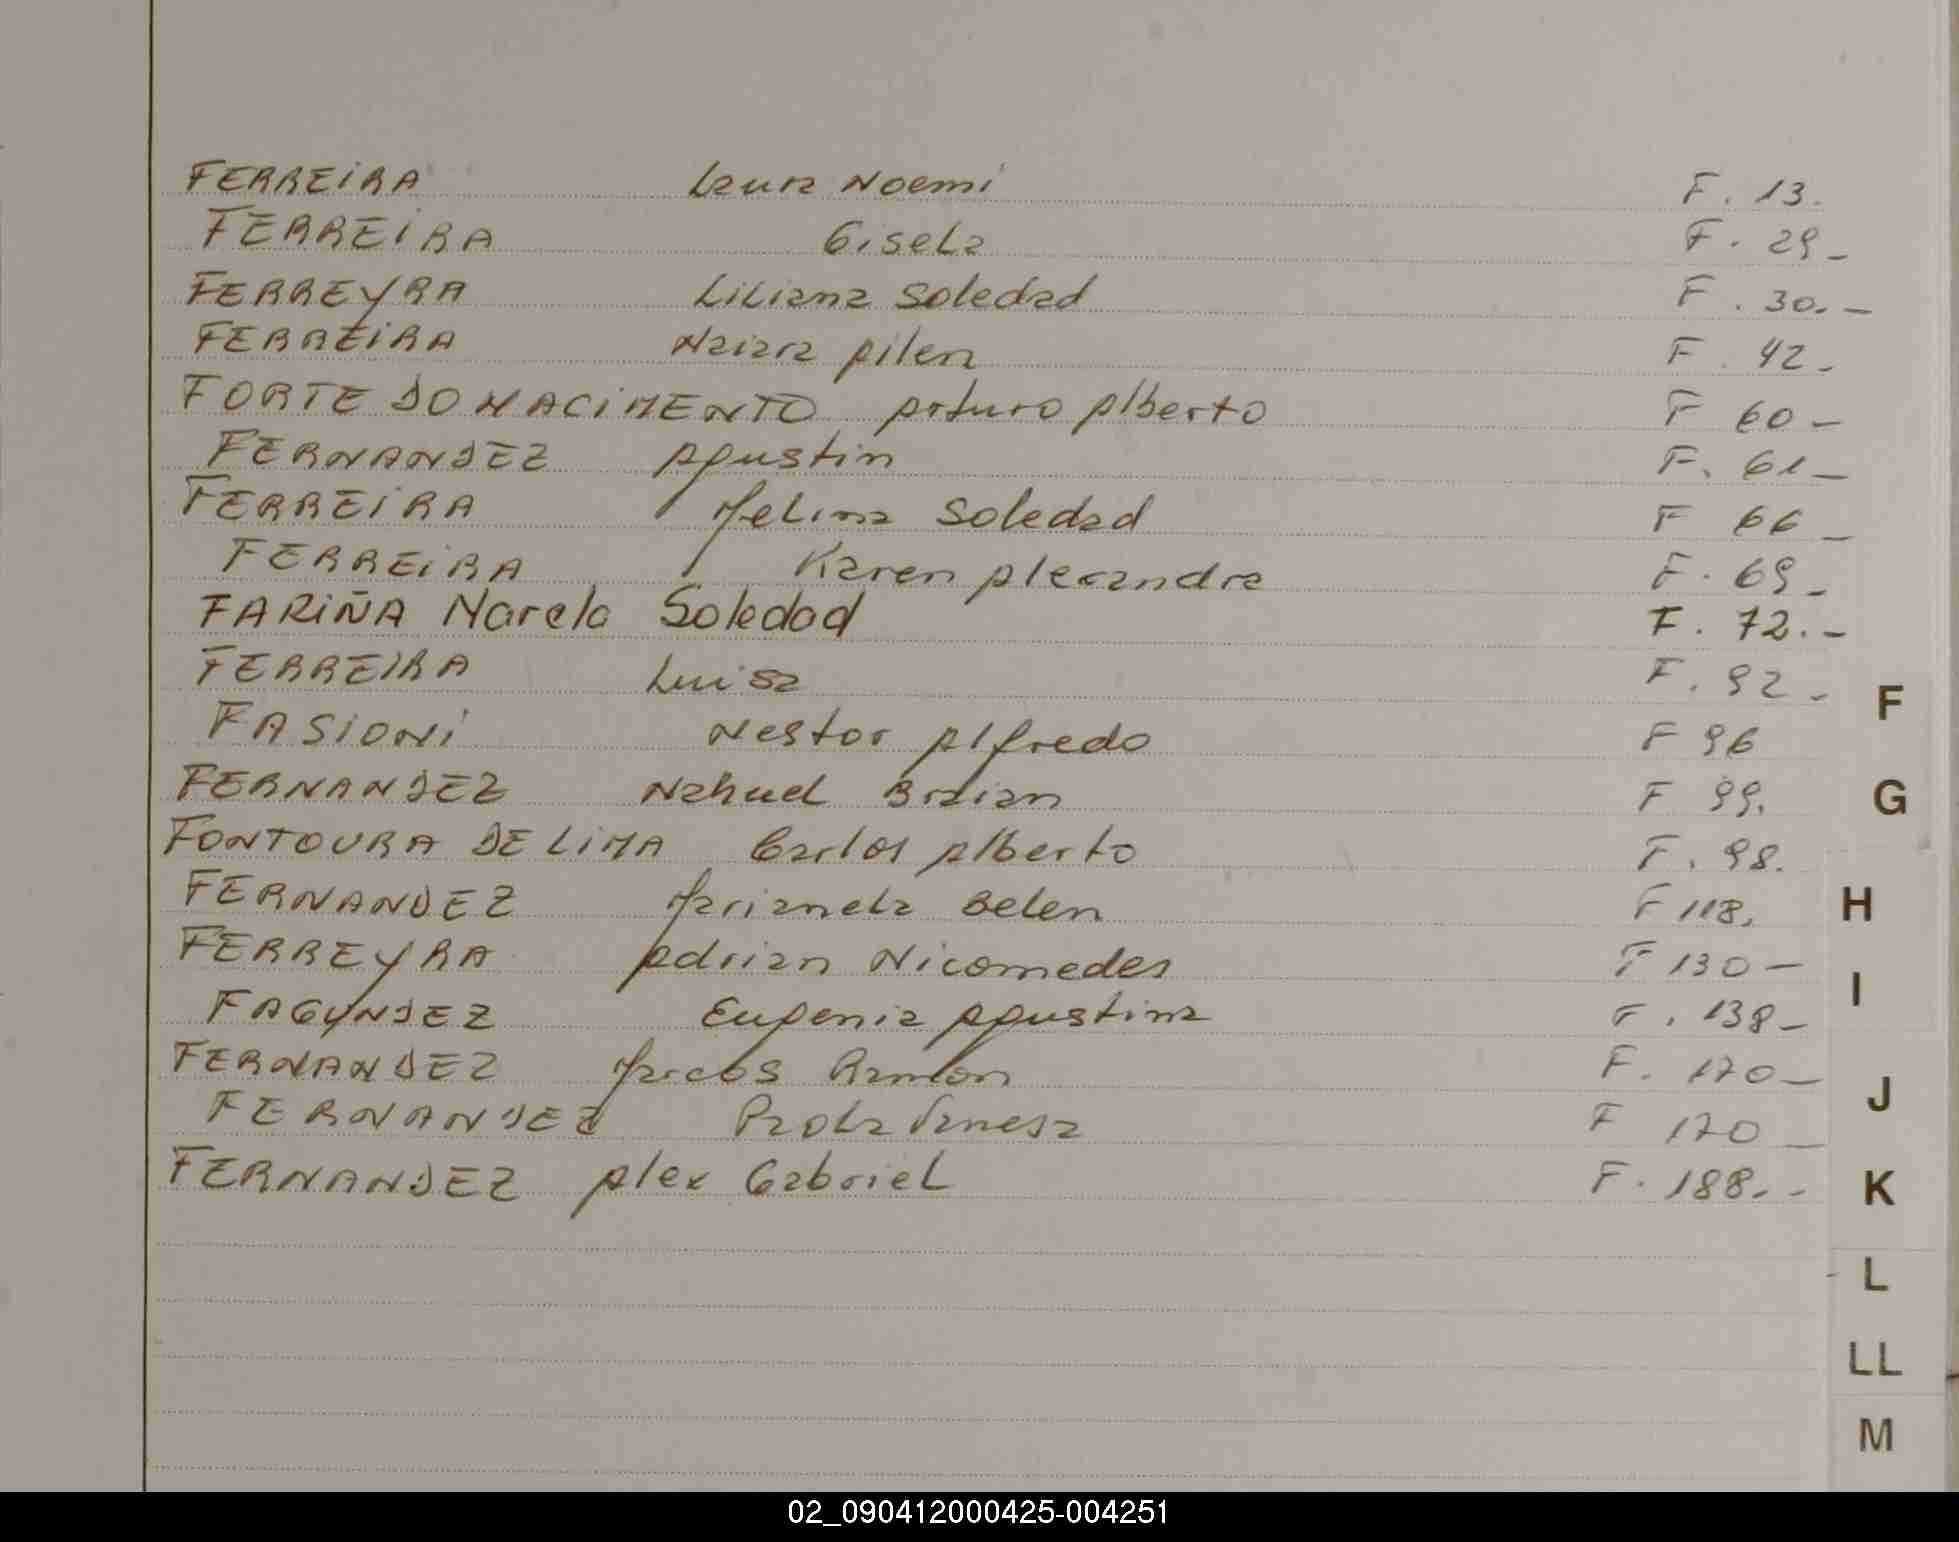 FERREIRA Laura Noemi F. 13.
FERREIRA Gisela F. 29_
FERREYRA Liliana Soledad F. 30._
FERREIRA Naiara Ailen F. 42_
FORTE DO NACIMENTO Arturo Alberto F 60_
FERNANDEZ Agustin F. 61_
FERREIRA Melina Soledad F 66_
FERREIRA Karen Alexandra F. 69_
FARIÑA Narela Soledad F. 72._
FERREIRA Luisa F. 92_
FASIONi Nestor Alfredo F 96
FERNANDEZ Nahuel Braian F 99.
FONTOURA DE LiMA Carlos Alberto F. 98.
FERNANDEZ Marianela Belen F 118.
FERREYRA Adrian Nicomedes F 130_
FAGUNDEZ Eugenia Agustina F. 138_
FERNANDEZ Marcos Ramon F. 170_
FERNANDEZ Paola Vanesa F 170_
FERNANDEZ Alex Gabriel F. 188._
F
G
H
I
J
K
L
LL
M
02_090412000425-004251